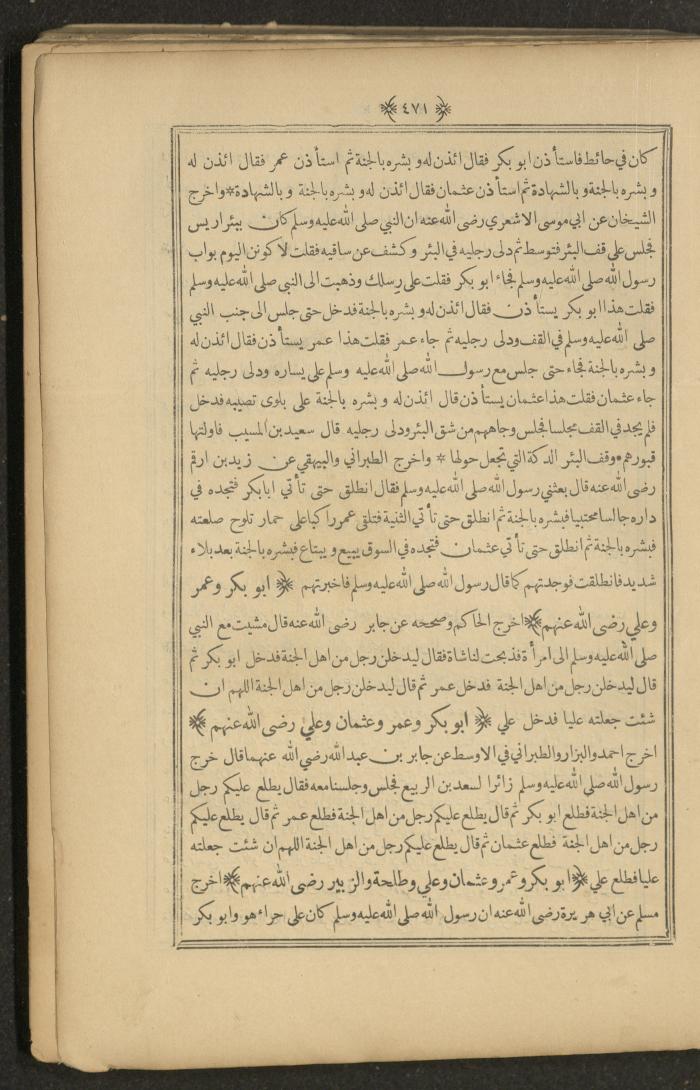 ﴿ ٤٧١ ﴾
كان في حائط فاستأذن ابو بكر فقال ائذن له وبشره بالجنة ثم استأذن عمر فقال ائذن له
وبشره بالجنة وبالشهادة ثم استأذن عثمان فقال ائذن له وبشره بالجنة وبالشهادة * واخرج
الشيخان عن ابي موسى الاشعري رضى الله عنه ان النبي صلى الله عليه وسلم كان ببئر اريس
فجلس على قف البئر فتوسط ثم دلى رجليه في البئر وكشف عن ساقيه فقلت لاكونن اليوم بواب
رسول الله صلى الله عليه وسلم فجاء ابو بكر فقلت على رسلك وذهبت الى النبي صلى الله عليه وسلم
فقلت هذا ابو بكر يستأذن فقال ائذن له وبشره بالجنة فدخل حتى جلس الى جنب النبي
صلى الله عليه وسلم في القف ودلى رجليه ثم جاء عمر فقلت هذا عمر يستأذن فقال ائذن له
وبشره بالجنة فجاء حتى جلس مع رسول الله صلى الله عليه وسلم على يساره ودلى رجليه ثم
جاء عثمان فقلت هذا عثمان يستأذن قال ائذن له وبشره بالجنة على بلوى تصيبه فدخل
فلم يجد في القف مجلسا فجلس وجاههم من شق البئر ودلى رجليه قال سعيد بن المسيب فاولتها
قبورهم * وقف البئر الدكة التي تجعل حولها * واخرج الطبراني والبيهقي عن زيد بن ارقم
رضى الله عنه قال بعثني رسول الله صلى الله عليه وسلم فقال انطلق حتى تأتي ابابكر فتجده في
داره جالسا محتبيا فبشره بالجنة ثم انطلق حتى تأتي الثنية فتلقى عمر راكبا على حمار تلوح صلعته
فبشره بالجنة ثم انطلق حتى تأتي عثمان فتجده في السوق يبيع ويبتاع فبشره بالجنة بعد بلاء
شديد فانطلقت فوجدتهم كما قال رسول الله صلى الله عليه وسلم فاخبرتهم ﴿ ابو بكر وعمر
وعلي رضى الله عنهم ﴾ اخرج الحاكم وصححه عن جابر رضى الله عنه قال مشيت مع النبي
صلى الله عليه وسلم الى امرأة فذبحت لنا شاة فقال ليدخلن رجل من اهل الجنة فدخل ابو بكر ثم
قال ليدخلن رجل من اهل الجنة فدخل عمر ثم قال ليدخلن رجل من اهل الجنة اللهم ان
شئت جعلته عليا فدخل علي ﴿ ابو بكر وعمر وعثمان وعلي رضى الله عنهم ﴾
اخرج احمد والبزار والطبراني في الاوسط عن جابر بن عبد الله رضى الله عنهما قال خرج
رسول الله صلى الله عليه وسلم زائرا لسعد بن الربيع فجلس وجلسنا معه فقال يطلع عليكم رجل
من اهل الجنة فطلع ابو بكر ثم قال يطلع عليكم رجل من اهل الجنة فطلع عمر ثم قال يطلع عليكم
رجل من اهل الجنة فطلع عثمان ثم قال يطلع عليكم رجل من اهل الجنة اللهم ان شئت جعلته
عليا فطلع علي ﴿ ابو بكر وعمر وعثمان وعلي وطلحة والزبير رضى الله عنهم ﴾ اخرج
مسلم عن ابي هريرة رضى الله عنه ان رسول الله صلى الله عليه وسلم كان على حراء هو وابو بكر